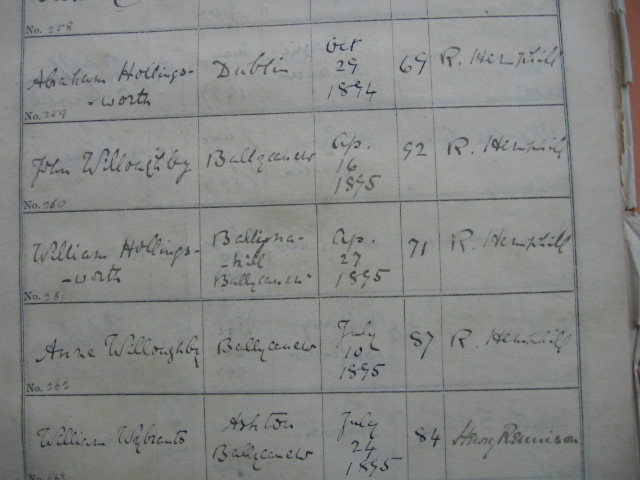 No. 258
Abraham Hollings- Dublin Oct 29 1894 69 R. Hemphill
-worth
No. 259
John Willoughby Ballycanew Ap. 16 1895 92 R. Hemphill
No. 260
William Hollings- Ballyna- Ap. 27 1895 71 R. Hemphill
-worth -hill Ballycanew
No. 261
Anne Willoughby Ballycanew July 10 1895 87 R. Hemphill
No. 262
William Wybrants Ashton July 24 1895 84 Henry Rennison
Ballycanew